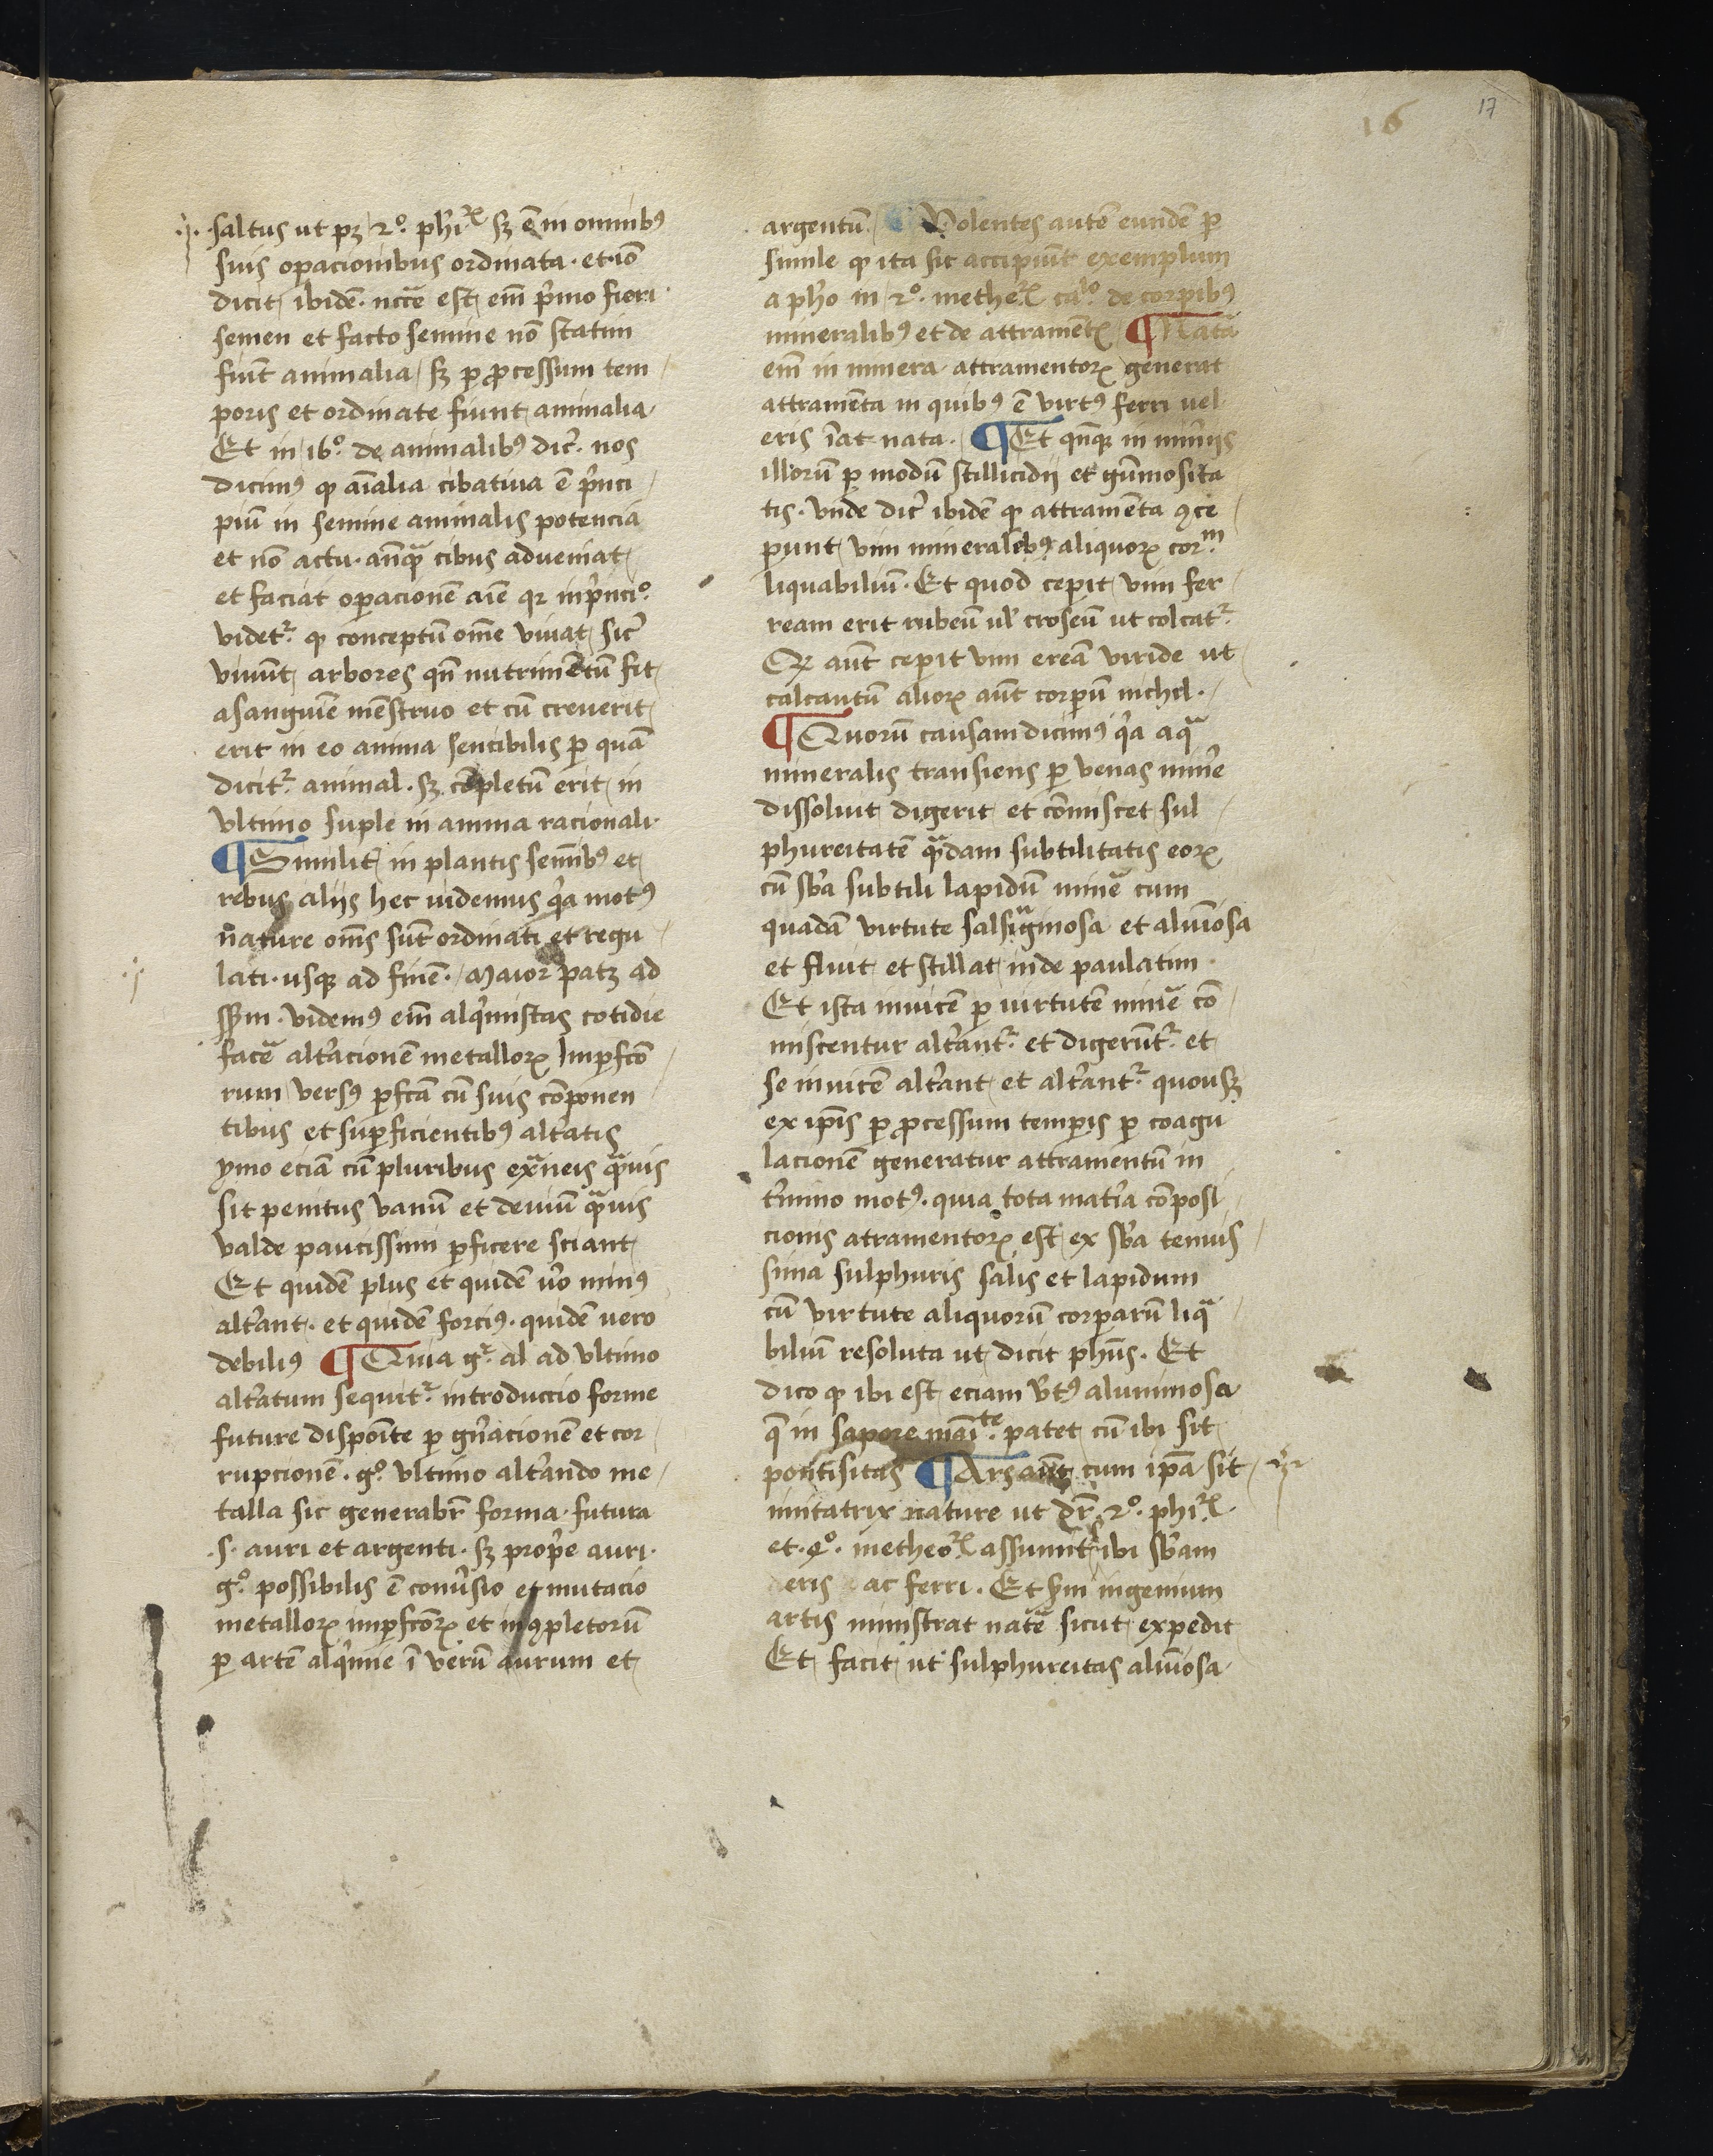 16
17
saltus ut pꝫ 2º. phiꝝ sꝫ ē in omnibꝯ
suis oꝑacionibus ordinata. et iō
dicit ibidē. nccē est em̄ pͥmo fieri
semen et facto semine nō statim
fiūt animalia / sꝫ ꝑ ꝓcessum tem /
poris et ordinate fiunt animalia.
Et in 16º. de animalibꝯ dicͬ. nos
dicimꝯ ꝙ aīalia cibatiua ē pͥnci /
piū in semine animalis potencia
et nō actu. anꝙ̄ cibus adueniat
et faciat oꝑacionē aīe qꝛ in pͥnciº.
videtᷣ. ꝙ conceptū om̄e viuat sicͬ
viuūt arbores qn̄ nutrimētū fit
a sanguīe mēstruo et cū creuerit
erit in eo anima sencibilis ꝑ quā
dicitᷣ. animal. sꝫ cōpletū erit in
vltimo suple in anima racionali.
¶ Similitͬ in plantis semībꝯ et
rebus aliis hec uidemus qͥa motꝯ
nature om̄s sūt ordinati et regu /
lati. usqꝫ ad finē. Maior patꝫ ad
ssm. videmꝯ em̄ alqͥmistas cotidie
facͤe altͬacionē metalloꝝ Imꝑfcō /
rum versꝯ ꝑfcā cū suis cōponen /
tibus et suꝑficientibꝯ altͬatis
ymo eciā cū pluribus exͣneis qͣuis
sit penitus vanū et deuiū qͣuis
valde paucissimi ꝑficere sciant
Et quidē plus et quidē uͦo minꝯ
altͬant. et quidē forciꝯ. quidē vero
debiliꝯ ¶ Quia gᷣ. al ad vltimo
altͬatum sequitᷣ. introduccio forme
future dispoīte ꝑ gn̄acionē et cor /
rupcionē. gº. vltimo altͬando me /
talla sic generabr̄ forma. futura
.s. auri et argenti. sꝫ propͥe auri.
gº. possibilis ē conūsio et mutacio
metalloꝝ imꝑfcōꝝ et inꝯpletorū
ꝑ artē alqͥmie ī verū aurum et
argentū. Volentes autē eundē ꝑ
simile ꝙ ita sit accipiūt exemplum
a phͦo in 2º. metheꝝ calº. de corꝑibꝯ
mineralibꝯ et de attramentꝭ ¶ Natā
em̄ in minera attramentoꝝ generat
attramēta in quibꝯ ē virtꝯ ferri uel
eris īat nata. ¶ Et qn̄qꝫ in minͥis
illorū ꝑ modū stillicidii et gūmosita
tis. vnde dicͬ ibidē ꝙ attramēta ꝯce /
punt vim mineralibꝯ aliquoꝝ corᵐ
liquabiliū. Et quod cepit vim fer /
ream erit rubeū ul̓ croseū ut colcatᷣ
Qͩ aūt cepit vim ereā viride ut
calcantū alioꝝ aūt corꝑū nichil.
¶ Quorū causam dicimꝯ qͥa aqͣ
mineralis transiens ꝑ venas minͤe
dissoluit digerit et cōmiscet sul /
phureitatē qͣdam subtilitatis eoꝝ
cū sb̄a subtili lapidū minē cum
quadā virtute salsuginosa et alumīosa
et fluit et stillat inde paulatim
Et ista inuicē ꝑ uirtutē minē cō /
miscentur altͬantᷣ. et digerūtᷣ. et
se inuicē altͬant et altͬantᷣ. quousqꝫ
ex ip̄is ꝑ ꝓcessum temꝑis ꝑ coagu
lacionē generatur attramentū in
tͬmino motꝯ. quia tota matͬia cōposi /
cionis atramentoꝝ est ex sb̄a tenuis /
sima sulphuris salis et lapidum
cū virtute aliquorū corꝑarū liqͣ
biliū resoluta ut dicit phūs. Et
dico ꝙ ibi est eciam vͬtꝯ aluminosa
qͤ in sapore māiᵗᵉ. patet cū ibi sit
pontisitas ¶ Ars aūt cum ip̄a sit
imitatrix nature ut dr̄ 2º. phiꝝ
et. 4º. metheoꝝ assumitᷣ ibi sb̄am
eris ac ferri. Et sm̄ ingenium
artis ministrat natē sicut expedit
Et facit ut sulphureitas alumīosa.